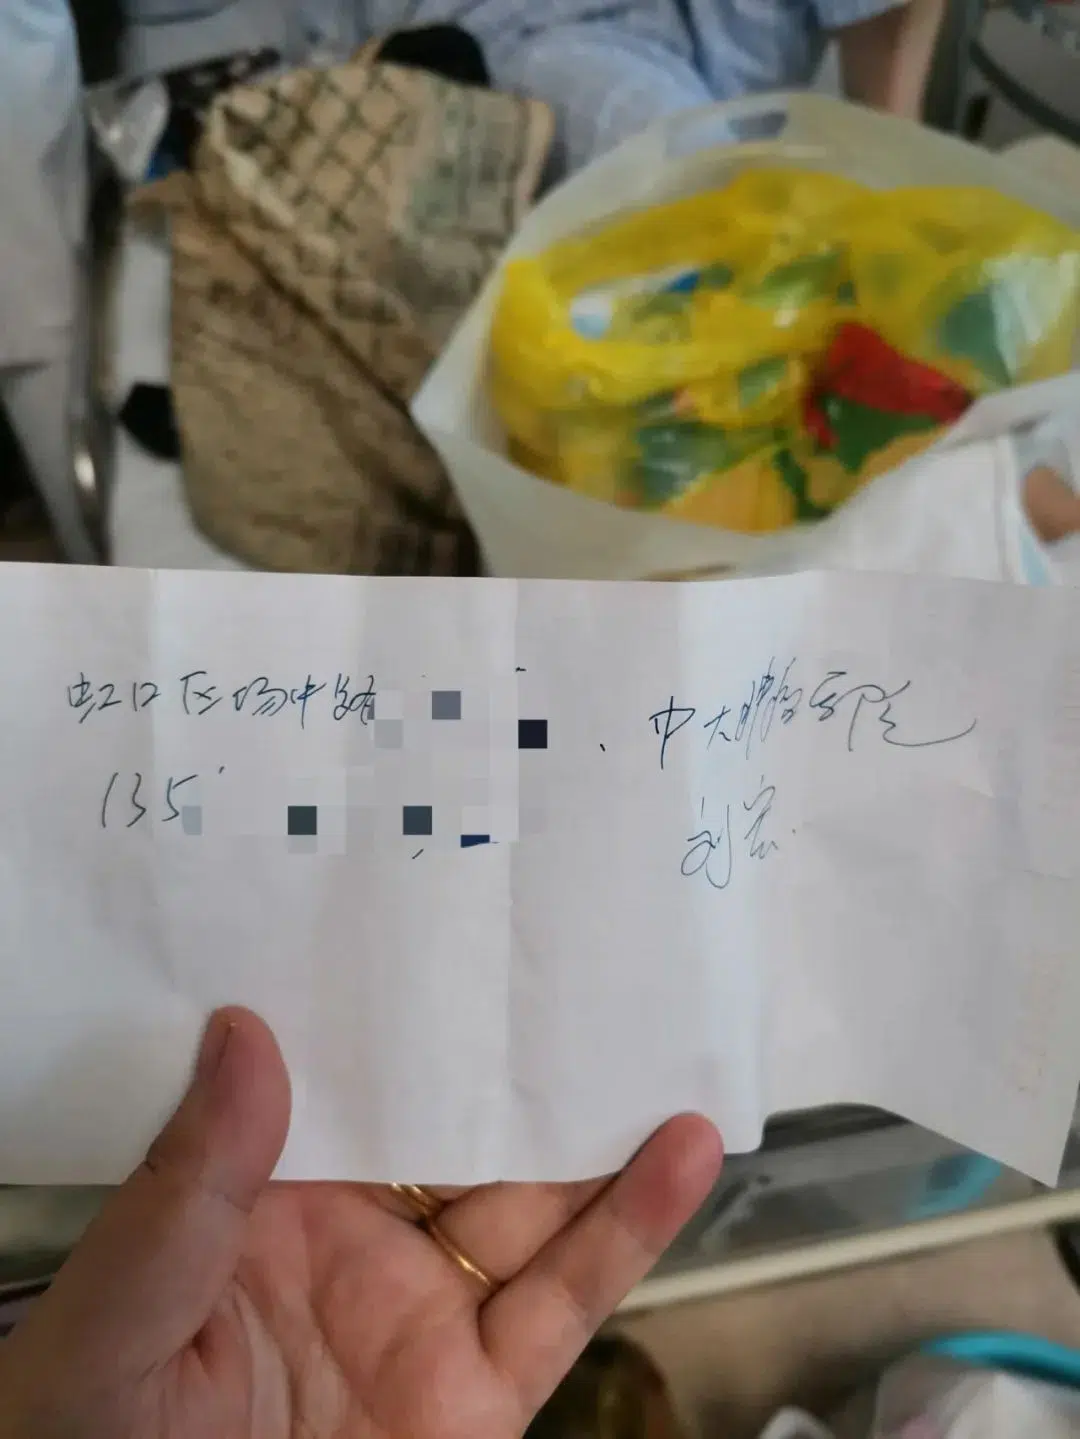 虹口区场中路
、中大肿瘤医院
135
刘宏